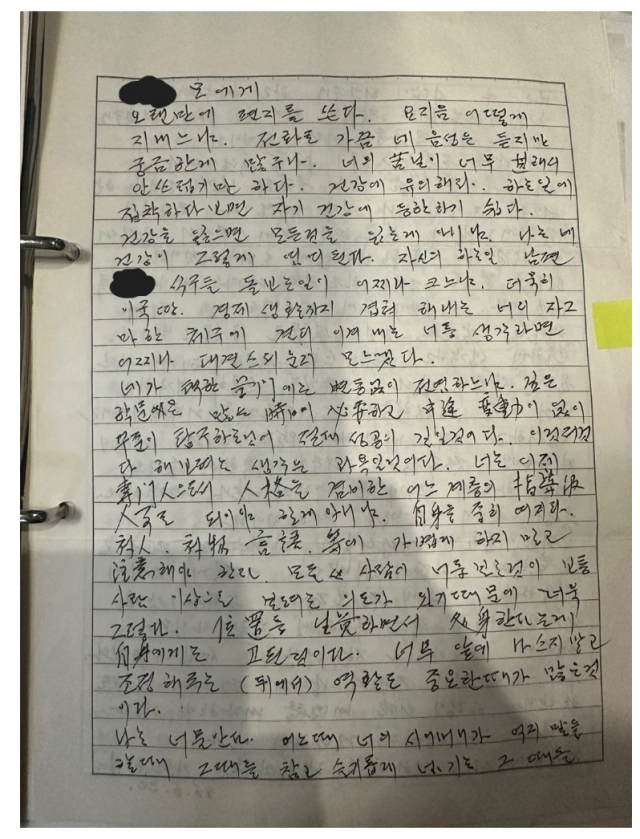 모에게
오랜만에 편지를 쓴다. 요지음 어떻게
지내느냐. 전화로 가끔 네 음성은 듣지만
궁금한게 많구나. 너의 苦님이 너무 심해서
안쓰럽기만 하다. 건강에 유의해라. 하는일에
집착하다 보면 자기 건강에 등한하기 쉽다.
건강을 잃으면 모든것을 잃는게 아니냐. 나는 네
건강이 그렇게 염려된다. 자신의 하는일 남편
식구들 돌보는일이 어찌나 크느냐. 더욱히
이국땅. 경제 생활까지 겹쳐 해내는 너의 자그
마한 체구에 견디 이겨내는 너를 생각하면
어찌나 대견스러운지 모르겠다.
네가 택한 길이에는 변동없이 전연하느냐. 깊은
학문에는 많은 時間이 必要하고 中途 変動이 없이
꾸준이 탐구하는것이 절대 성공의 길일것이다. 이것저것
다 해보려는 생각은 과욕일것이다. 너는 이제
專門人으로서 人格을 겸비한 어느 계층의 指導級
人家로 되어야 할게 아니냐. 自身을 중히 여겨라.
처신, 言語, 등에 가볍게 하지 말고
注意해야 한다. 모든 사람이 너를 보통
사람 이상으로 보려는 의도가 있기때문에 더욱
그렇다. 位置를 날覺하면서 處身한다는게
自身에게는 고된 일이다. 너무 앞에 나스지 말고
조정해주는 (뒤에서) 역활도 중요한때가 많은것
이다.
나는 너를 안다. 어느때 너의 시어머니가 억지 말을
할때 그때를 참고 슬기롭게 넘기는 그 때를